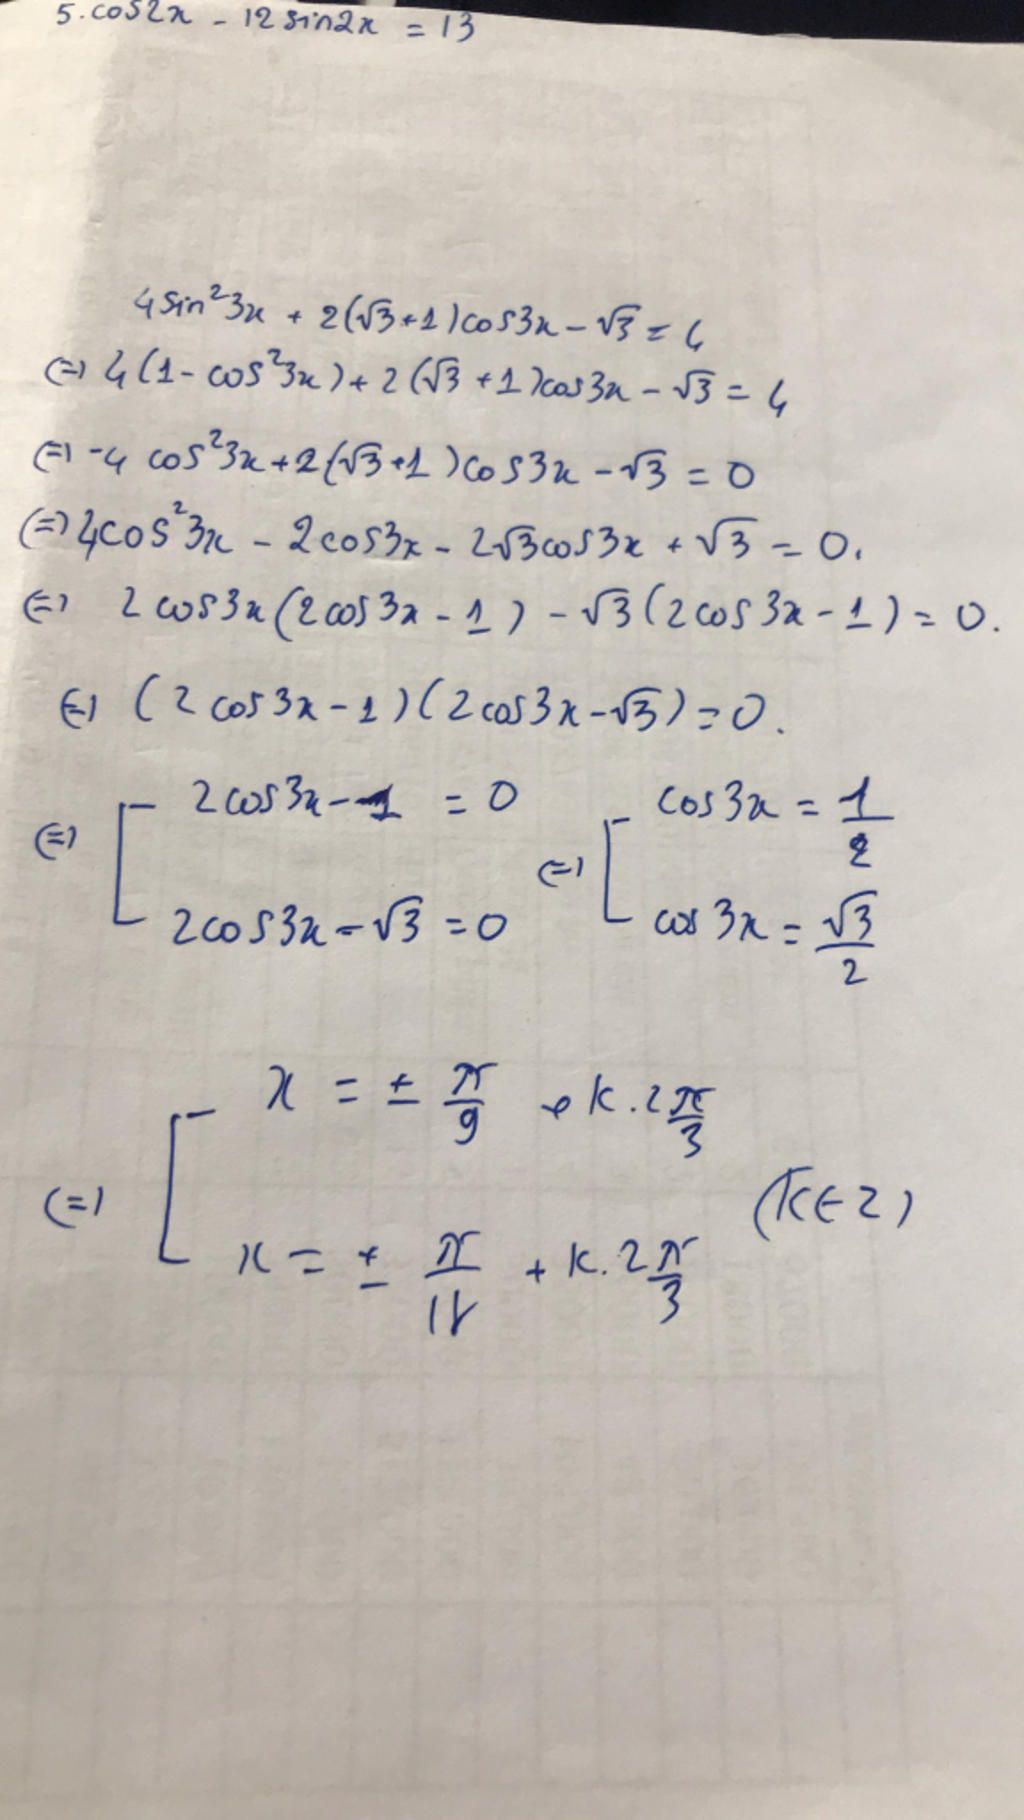 5.cos2x - 12 sin2x = 13
4sin²3x + 2(√3+1)cos3x - √3 = 4
(=) 4(1 - cos²3x) + 2(√3 + 1)cos3x - √3 = 4
(=) -4 cos²3x + 2(√3+1)cos3x - √3 = 0
(=) 4cos²3x - 2cos3x - 2√3cos3x + √3 = 0.
(=) 2cos3x(2cos3x - 1) - √3(2cos3x - 1) = 0.
(=) (2cos3x - 1)(2cos3x - √3) = 0.
(=) [ 2cos3x - 1 = 0 (=) [ cos3x = 1/2
2cos3x - √3 = 0 cos3x = √3/2
(=) [ x = ± π/9 + k.2π/3
x = ± π/18 + k.2π/3 (k∈Z)